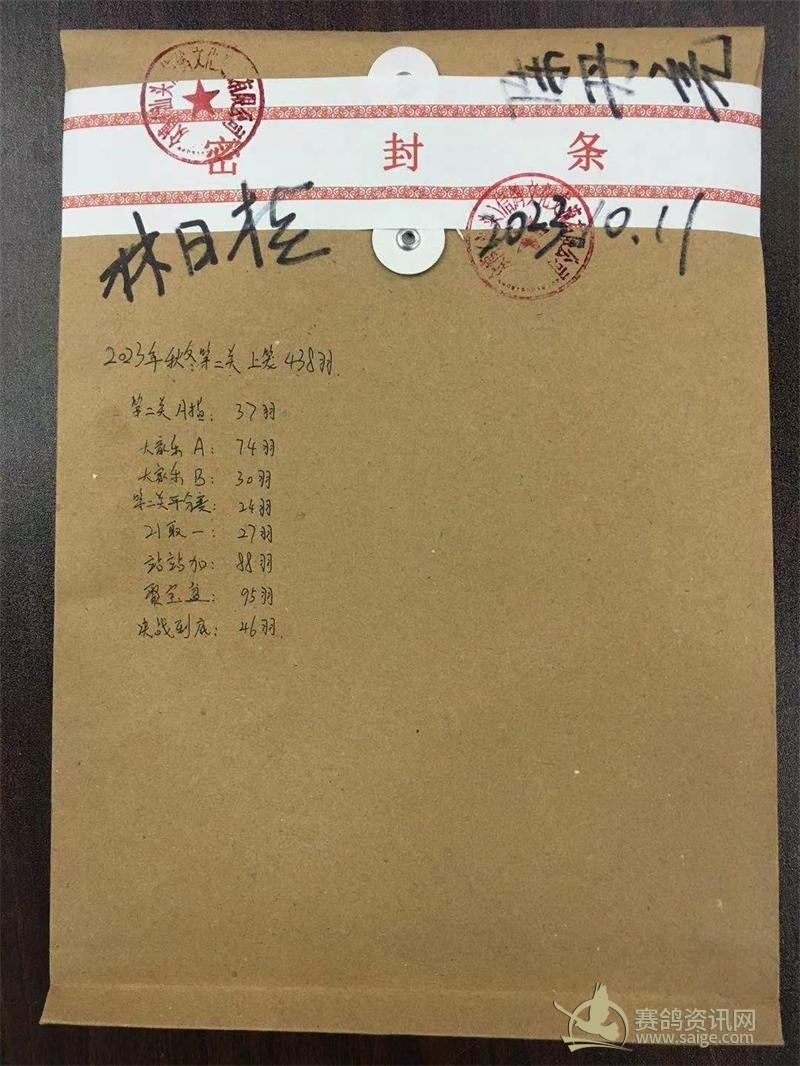 密封条
林日
2023.10.11
2023年秋冬第二关上笼438羽.
第二关月指: 37羽
大家乐A: 74羽
大家乐B: 30羽
第二关平分赛: 24羽
21取一: 27羽
站站加: 88羽
聚宝盆: 95羽
决战到底: 46羽.
赛鸽资讯网
www.saige.com